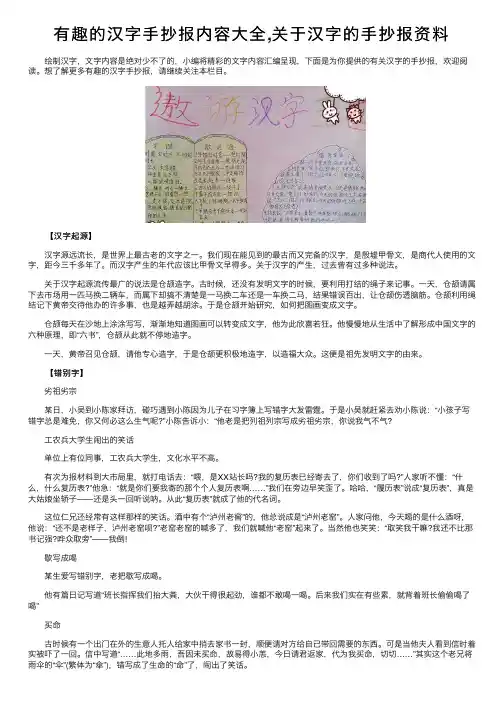 有趣的汉字手抄报内容大全,关于汉字的手抄报资料
绘制汉字，文字内容是绝对少不了的，小编将精彩的文字内容汇编呈现，下面是为你提供的有关汉字的手抄报，欢迎阅
读。想了解更多有趣的汉字手抄报，请继续关注本栏目。
遨游汉字王国
【汉字起源】
汉字源远流长，是世界上最古老的文字之一。我们现在能见到的最古而又完备的汉字，是殷墟甲骨文，是商代人使用的文
字，距今三千多年了。而汉字产生的年代应该比甲骨文早得多。关于汉字的产生，过去曾有过多种说法。
关于汉字起源流传最广的说法是仓颉造字。古时候，还没有发明文字的时候，要利用打结的绳子来记事。一天，仓颉请属
下去市场用一匹马换二辆车，而属下却搞不清楚是一马换二车还是一车换二马，结果错误百出，让仓颉伤透脑筋。仓颉利用绳
结记下黄帝交待他办的许多事，也是越弄越胡涂。于是仓颉开始研究，如何把图画变成文字。
仓颉每天在沙地上涂涂写写，渐渐地知道图画可以转变成文字，他为此欣喜若狂。他慢慢地从生活中了解形成中国文字的
六种原理，即“六书”，仓颉从此就不停地造字。
一天，黄帝召见仓颉，请他专心造字，于是仓颉更积极地造字，以造福大众。这便是祖先发明文字的由来。
【错别字】
劣祖劣宗
某日，小吴到小陈家拜访，碰巧遇到小陈因为儿子在习字簿上写错字大发雷霆。于是小吴就赶紧去劝小陈说：“小孩子写
错字总是难免，你又何必这么生气呢?”小陈告诉小：“他老是把列祖列宗写成劣祖劣宗，你说我气不气?
工农兵大学生闹出的笑话
单位上有位同事，工农兵大学生，文化水平不高。
有次为报材料到大市局里，就打电话去：“喂，是XX站长吗?我的复历表已经寄去了，你们收到了吗?”人家听不懂：“什
么，什么复历表?”他急：“就是你们要我寄的那个个人复历表啊……”我们在旁边早笑歪了。哈哈，“履历表”说成“复历表”，真是
大姑娘坐轿子——还是头一回听说呐。从此“复历表”就成了他的代名词。
这位仁兄还经常有这样那样的笑话。酒中有个“泸州老窖”的，他总说成是“泸州老窑”。人家问他，今天喝的是什么酒呀，
他说：“还不是老样子，泸州老窑呗?”老窑老窑的喊多了，我们就喊他“老窑”起来了。当然他也笑笑：“取笑我干嘛?我还不比那
书记强?哗众取旁”——我倒!
歇写成喝
某生爱写错别字，老把歇写成喝。
他有篇日记写道“班长指挥我们抬大粪，大伙干得很起劲，谁都不敢喝一喝。后来我们实在有些累，就背着班长偷偷喝了
喝”
买命
古时候有一个出门在外的生意人托人给家中捎去家书一封，顺便请对方给自已带回需要的东西。可是当他夫人看到信时着
实被吓了一回。信中写道“……此地多雨，吾因未买命，故易得小恙，今日请君返家，代为我买命，切切……”其实这个老兄将
雨伞的“伞”(繁体为“傘”)，错写成了生命的“命”了，闹出了笑话。